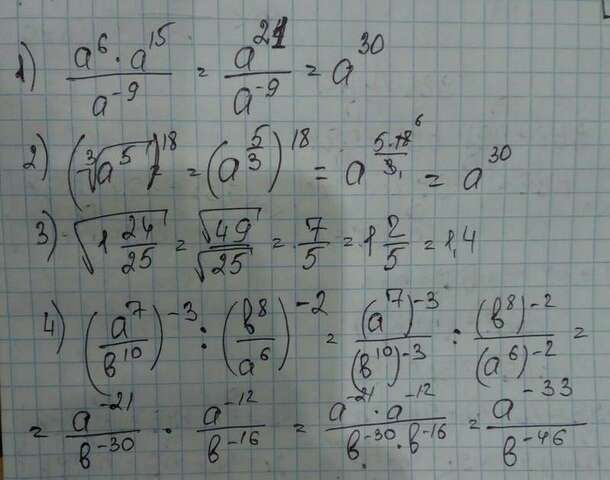 1) (a⁶ · a¹⁵)/(a⁻⁹) = (a²¹)/(a⁻⁹) = a³⁰
2) (∛a⁵)¹⁸ = (a^(5/3))¹⁸ = a^(5·18⁶/3₁) = a³⁰
3) √(1 24/25) = √49/√25 = 7/5 = 1 2/5 = 1,4
4) (a⁷/b¹⁰)⁻³ : (b⁸/a⁶)⁻² = (a⁷)⁻³/(b¹⁰)⁻³ : (b⁸)⁻²/(a⁶)⁻² =
= a⁻²¹/b⁻³⁰ · a⁻¹²/b⁻¹⁶ = (a⁻²¹ · a⁻¹²)/(b⁻³⁰ · b⁻¹⁶) = a⁻³³/b⁻⁴⁶